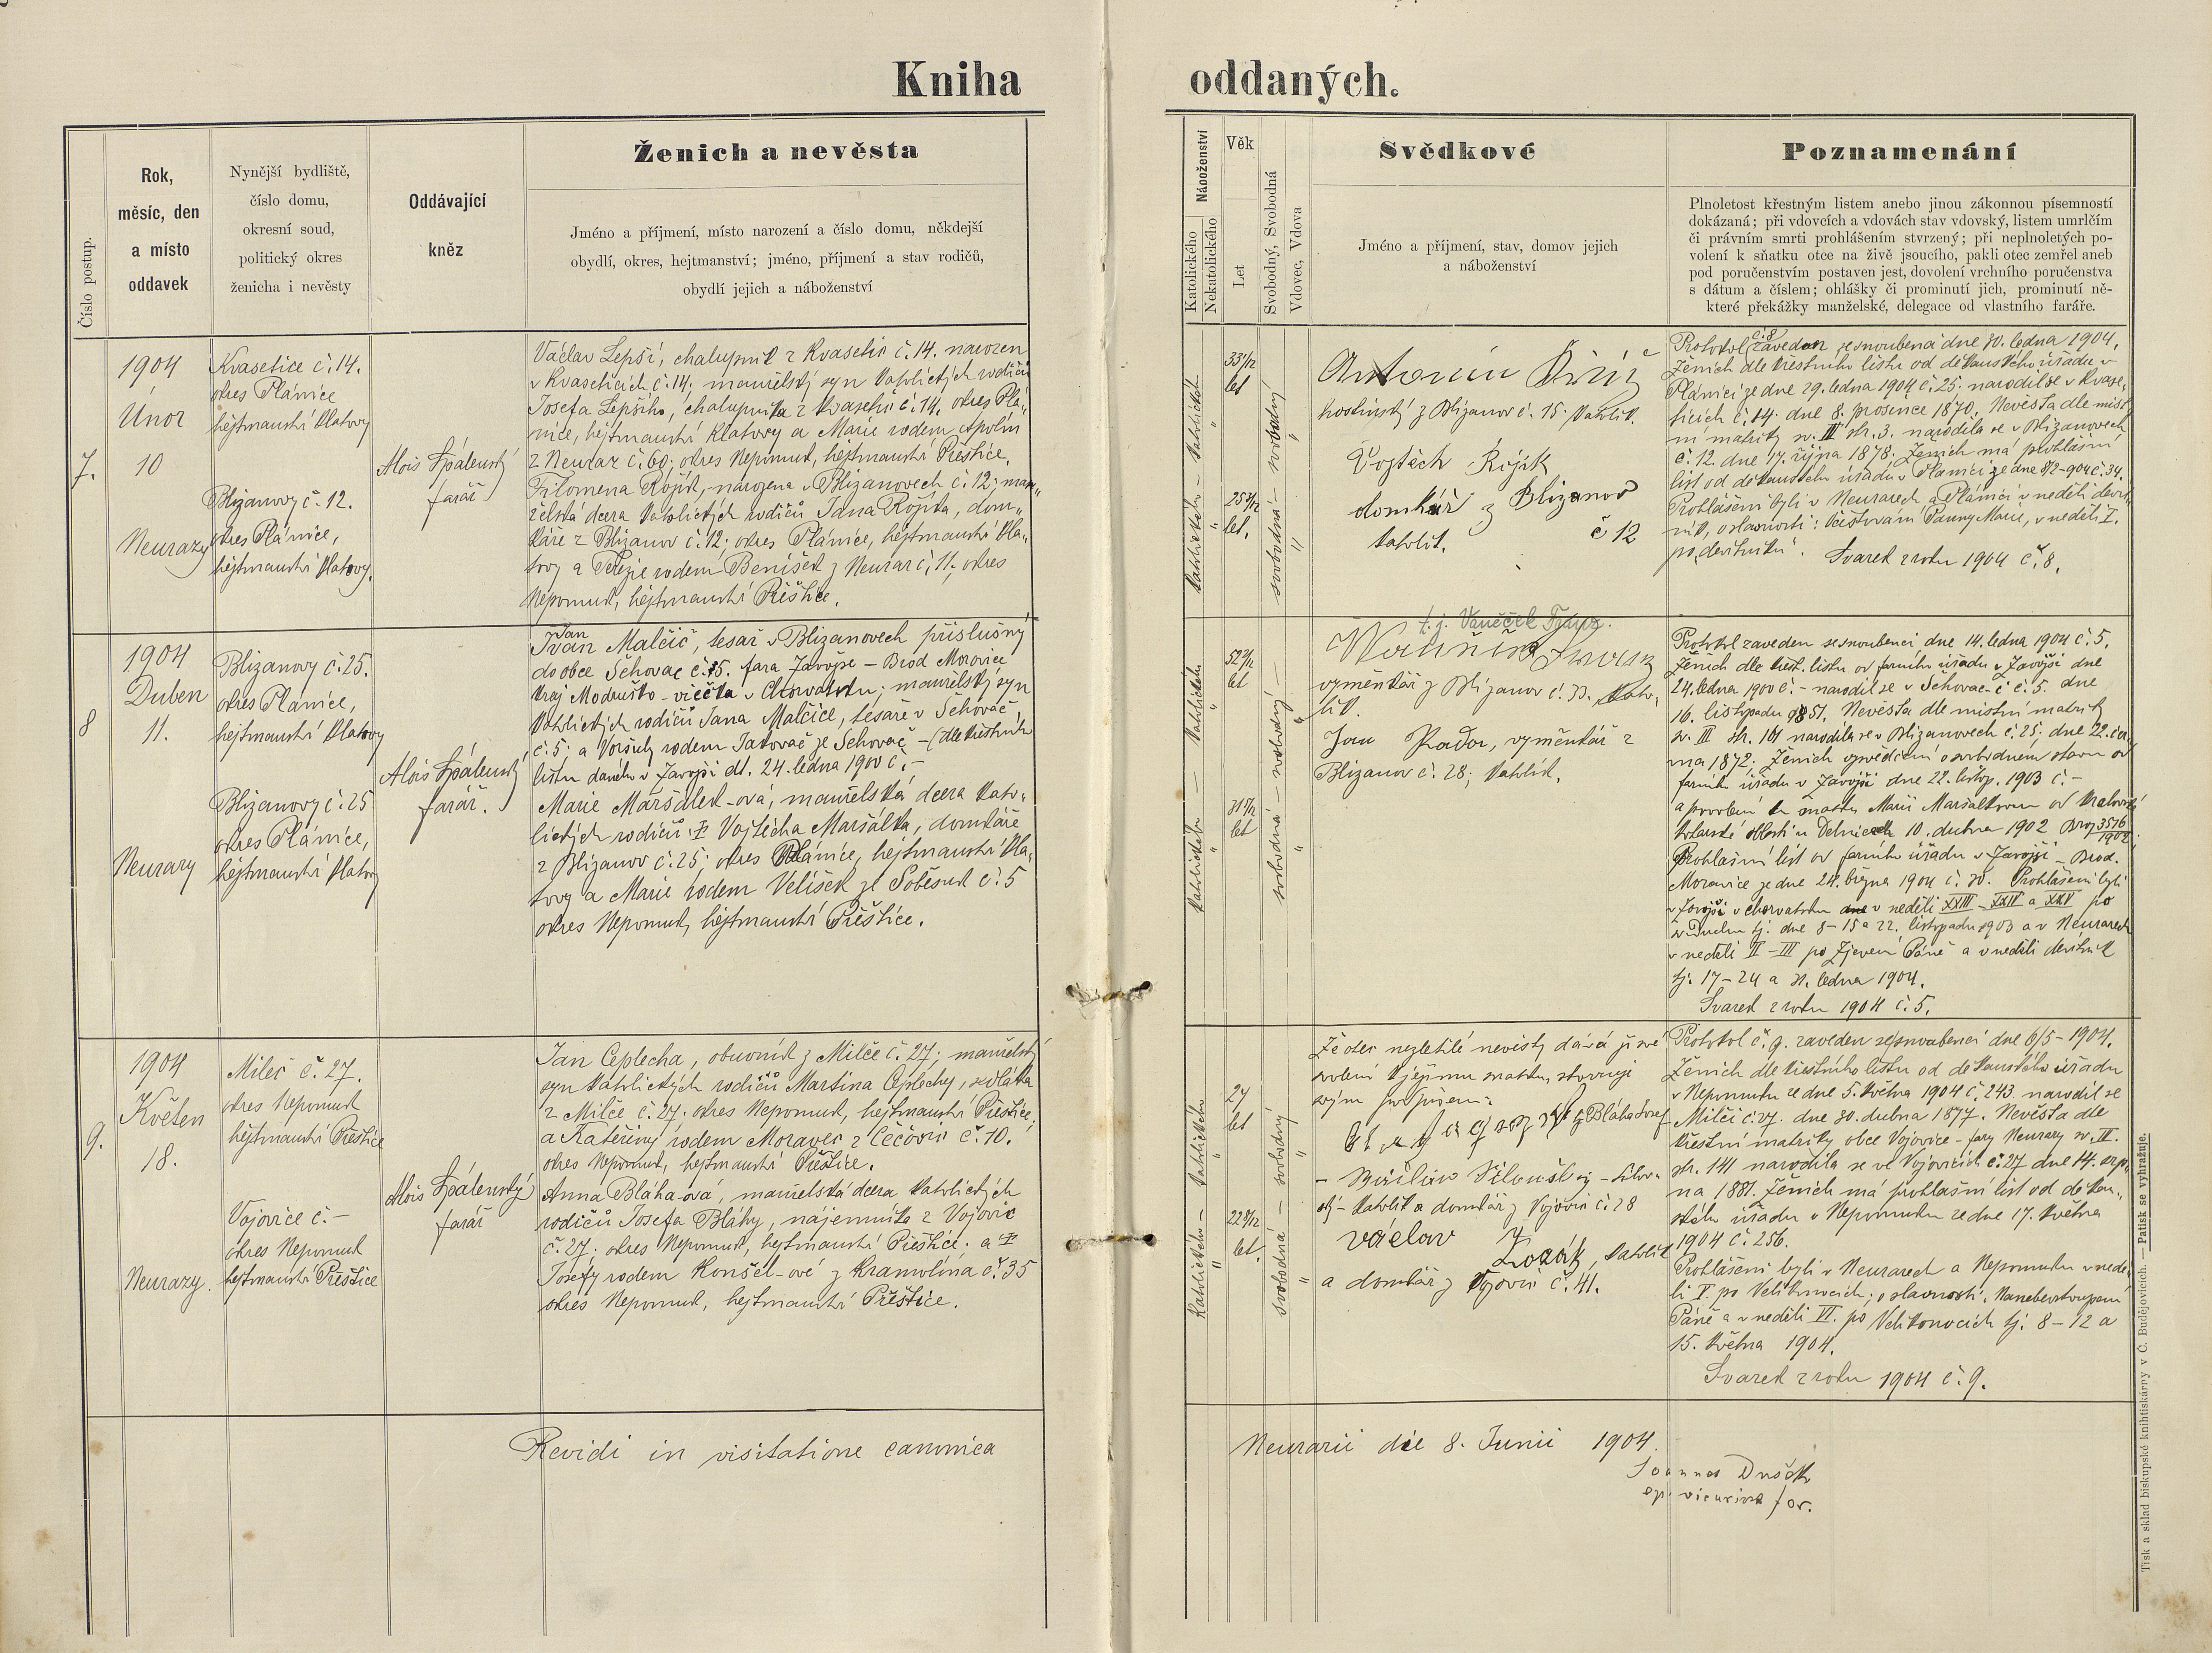 Kniha oddaných.
Číslo postup.
Rok,
měsíc, den
a místo
oddavek
Nynější bydliště,
číslo domu,
okresní soud,
politický okres
ženicha i nevěsty
Oddávající
kněz
Ženich a nevěsta
Jméno a příjmení, místo narození a číslo domu, někdejší
obydlí, okres, hejtmanství; jméno, příjmení a stav rodičů,
obydlí jejich a náboženství
Náboženství
Katolického
Nekatolického
Věk
Let
Svobodný, Svobodná
Vdovec, Vdova
Svědkové
Jméno a příjmení, stav, domov jejich
a náboženství
Poznamenání
Plnoletost křestným listem anebo jinou zákonnou písemností
dokázaná; při vdovcích a vdovách stav vdovský, listem umrlčím
či právním smrti prohlášením stvrzený; při neplnoletých po-
volení k sňatku otce na živě jsoucího, pakli otec zemřel aneb
pod poručenstvím postaven jest, dovolení vrchního poručenstva
s dátum a číslem; ohlášky či prominutí jich, prominutí ně-
které překážky manželské, delegace od vlastního faráře.
7.
1904
Únor
10
Neurazy
Kvasetice č. 14.
okres Plánice
hejtmanství Klatovy
Blizanovy č. 12.
okres Plánice,
hejtmanství Klatovy.
Alois Spálenský
farář
Václav Lepší, chalupník z Kvasetic č. 14. narozen
v Kvaseticích č. 14; manželský syn katolických rodičů
Josefa Lepšího, chalupníka z Kvasetic č. 14, okres Plá„
nice, hejtmanství Klatovy a Marie rodem
z Neuraz č. 60; okres Nepomuk, hejtmanství Přeštice.
Filomena Rojík, narozena v Blizanovech č. 12; man„
želská dcera katolických rodičů Jana Rojíka, dom„
káře z Blizanov č. 12; okres Plánice, hejtmanství Kla„
tovy a Terezie rodem Benišek z Neuraz č. 11; okres
Nepomuk, hejtmanství Přeštice.
Katolického – katolického
33 1/12
let
25 3/12
let.
svobodná – svobodný
Antonín
hostinský z Blizanov č. 15. katolík.
Vojtěch Rojík
domkář z Blizanov
č 12
katolík.
Protokol č. 8 zaveden se snoubenci dne 30. ledna 1904.
Ženich dle křestního listu od děkanského úřadu v
Plánici ze dne 29. ledna 1904 č. 25. narodil se v Kvase„
ticích č. 14. dne 8. prosince 1870. Nevěsta dle míst„
ní matriky sv. III str. 3. narodila se v Blizanovech
č. 12. dne 17. října 1878. Ženich má prohlášní
list od děkanského úřadu v Plánici ze dne 8/2-904 č. 34.
Prohlášeni byli v Neurazech a Plánici v neděli devít„
ník, o slavnosti: Očisťování Panny Marie, v neděli I.
po „devítníku“. Svazek z roku 1904 č. 8.
8
1904
Duben
11.
Neurazy
Blizanovy č. 25.
okres Plánice,
hejtmanství Klatovy
Blizanovy č. 25
okres Plánice,
hejtmanství Klatovy
Alois Spálenský
farář.
Jan
Ivan Malčič, tesař v Blizanovech příslušný
do obce Šehovac č. 5. fara Zavojse – Brod Moravice
kraj Modruško – v Chorvatsku; manželský syn
katolických rodičů Jana Malčice, tesaře v Šehovač
č. 5; a Voršuly rodem Jakovač ze Šehovač – (dle křestního
listu daného v Zavojsi dt. 24. ledna 1900 č. –
Marie Maršálek-ová, manželská dcera kato„
lických rodičů: † Vojtěcha Maršálka, domkáře
z Blizanov č. 25; okres Plánice, hejtmanství Kla„
tovy a Marie rodem Velíšek ze Soběsuk č. 5
okres Nepomuk, hejtmanství Přeštice.
Katolického – katolického
52 /12
let
31 /12
let
svobodná – svobodný
t. j. Vaněček Franz.
výměnkář z Blizanov č. 33. kato„
lík.
Jan Rador, výměnkář z
Blizanov č. 28; katolík.
Protokol zaveden se snoubenci dne 14. ledna 1904 č. 5.
Ženich dle křest. listu od farního úřadu v Zavojsi dne
24. ledna 1900 č. – narodil se v Šehovač-i č. 5. dne
16. listopadu 1851. Nevěsta dle místní matriky
sv. III str. 161 narodila se v Blizanovech č. 25; dne 22.
1872. Ženich vysvědčení o svobodném stavu od
farního úřadu v Zavojsi dne 22. listop. 1903 č. –
a povolení ke sňatku Marií Maršálkovou od
v Delnicích 10. dubna 1902 Broj 3576/1902.
Prohlášní list od farního úřadu v Zavojsi – Brod.
Moravice ze dne 24. března 1904 č. 30. Prohlášeni byli
v Zavojsi v chorvatsku v neděli XXIII – XXIV a XXV po
sv. Duchu tj. dne 8 – 15 a 22. listopadu 1903 a v Neurazech
v neděli II – III po Zjevení Páně a v neděli devítník
tj. 17 – 24 a 31. ledna 1904.
Svazek z roku 1904 č. 5.
9.
1904
Květen
18.
Neurazy.
Mileč č. 27.
okres Nepomuk
hejtmanství Přeštice
Vojovice č. –
okres Nepomuk
hejtmanství Přeštice
Alois Spálenský
farář
Jan Ceplecha, obuvník z Milče č. 27; manželský
syn katolických rodičů Martina Ceplechy, sedláka
z Milče č. 27. okres Nepomuk, hejtmanství Přeštice;
a Kateřiny rodem Moravec z Čečovic č. 10.
okres Nepomuk, hejtmanství Přeštice.
Anna Bláha-ová, manželská dcera katolických
rodičů Josefa Bláhy, nájemníka z Vojovic
č. 27; okres Nepomuk, hejtmanství Přeštice; a †
Josefy rodem Konšel-ové z Kramolína č. 35
okres Nepomuk, hejtmanství Přeštice.
Katolického – katolického
27
let
22 9/12
let.
svobodná – svobodný
Že otec nezletilé nevěsty dává jí své
svolení k jejímu sňatku, stvrzuji
svým podpisem:
Bláha Josef
katolík a domkář z Vojovic č. 28
václav Zozák, katolík
a domkář z Vojovic č. 41.
Protokol č. 9. zaveden se snoubenci dne 6/5 – 1904.
Ženich dle křestního listu od děkanského úřadu
v Nepomuku ze dne 5. května 1904 č. 243 narodil se
v Milči č. 27. dne 30. dubna 1877. Nevěsta dle
křestní matriky obce Vojovice – fary Neurazy sv. II.
str. 141 narodila se ve Vojovicích č. 27 dne 14. srp„
na 1881. Ženich má prohlášní list od děkan„
ského úřadu v Nepomuku ze dne 17. května
1904 č. 256.
Prohlášeni byli v Neurazech a Nepomuku v nedě„
li V. po Velikonocích; o slavnosti: Nanebevstoupení
Páně a v neděli VI. po Velikonocích tj. 8 – 12 a
15. května 1904.
Svazek z roku 1904 č. 9.
Revidi in visitatione canonica
Neurazii die 8. Junii 1904.
Joannes Dušek
ep. vicarius for.
Tisk a sklad biskupské knihtiskárny v Č. Budějovicích. — Patisk se vyhražuje.